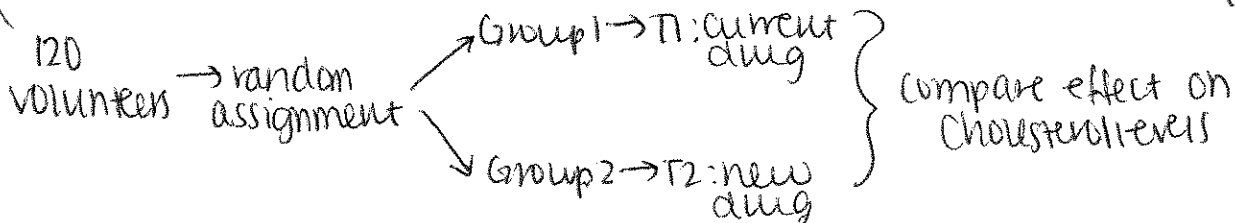 120
volunteers → random
assignment
Group1 → T1: current
drug
Group2 → T2: new
drug
compare effect on
cholesterol levels